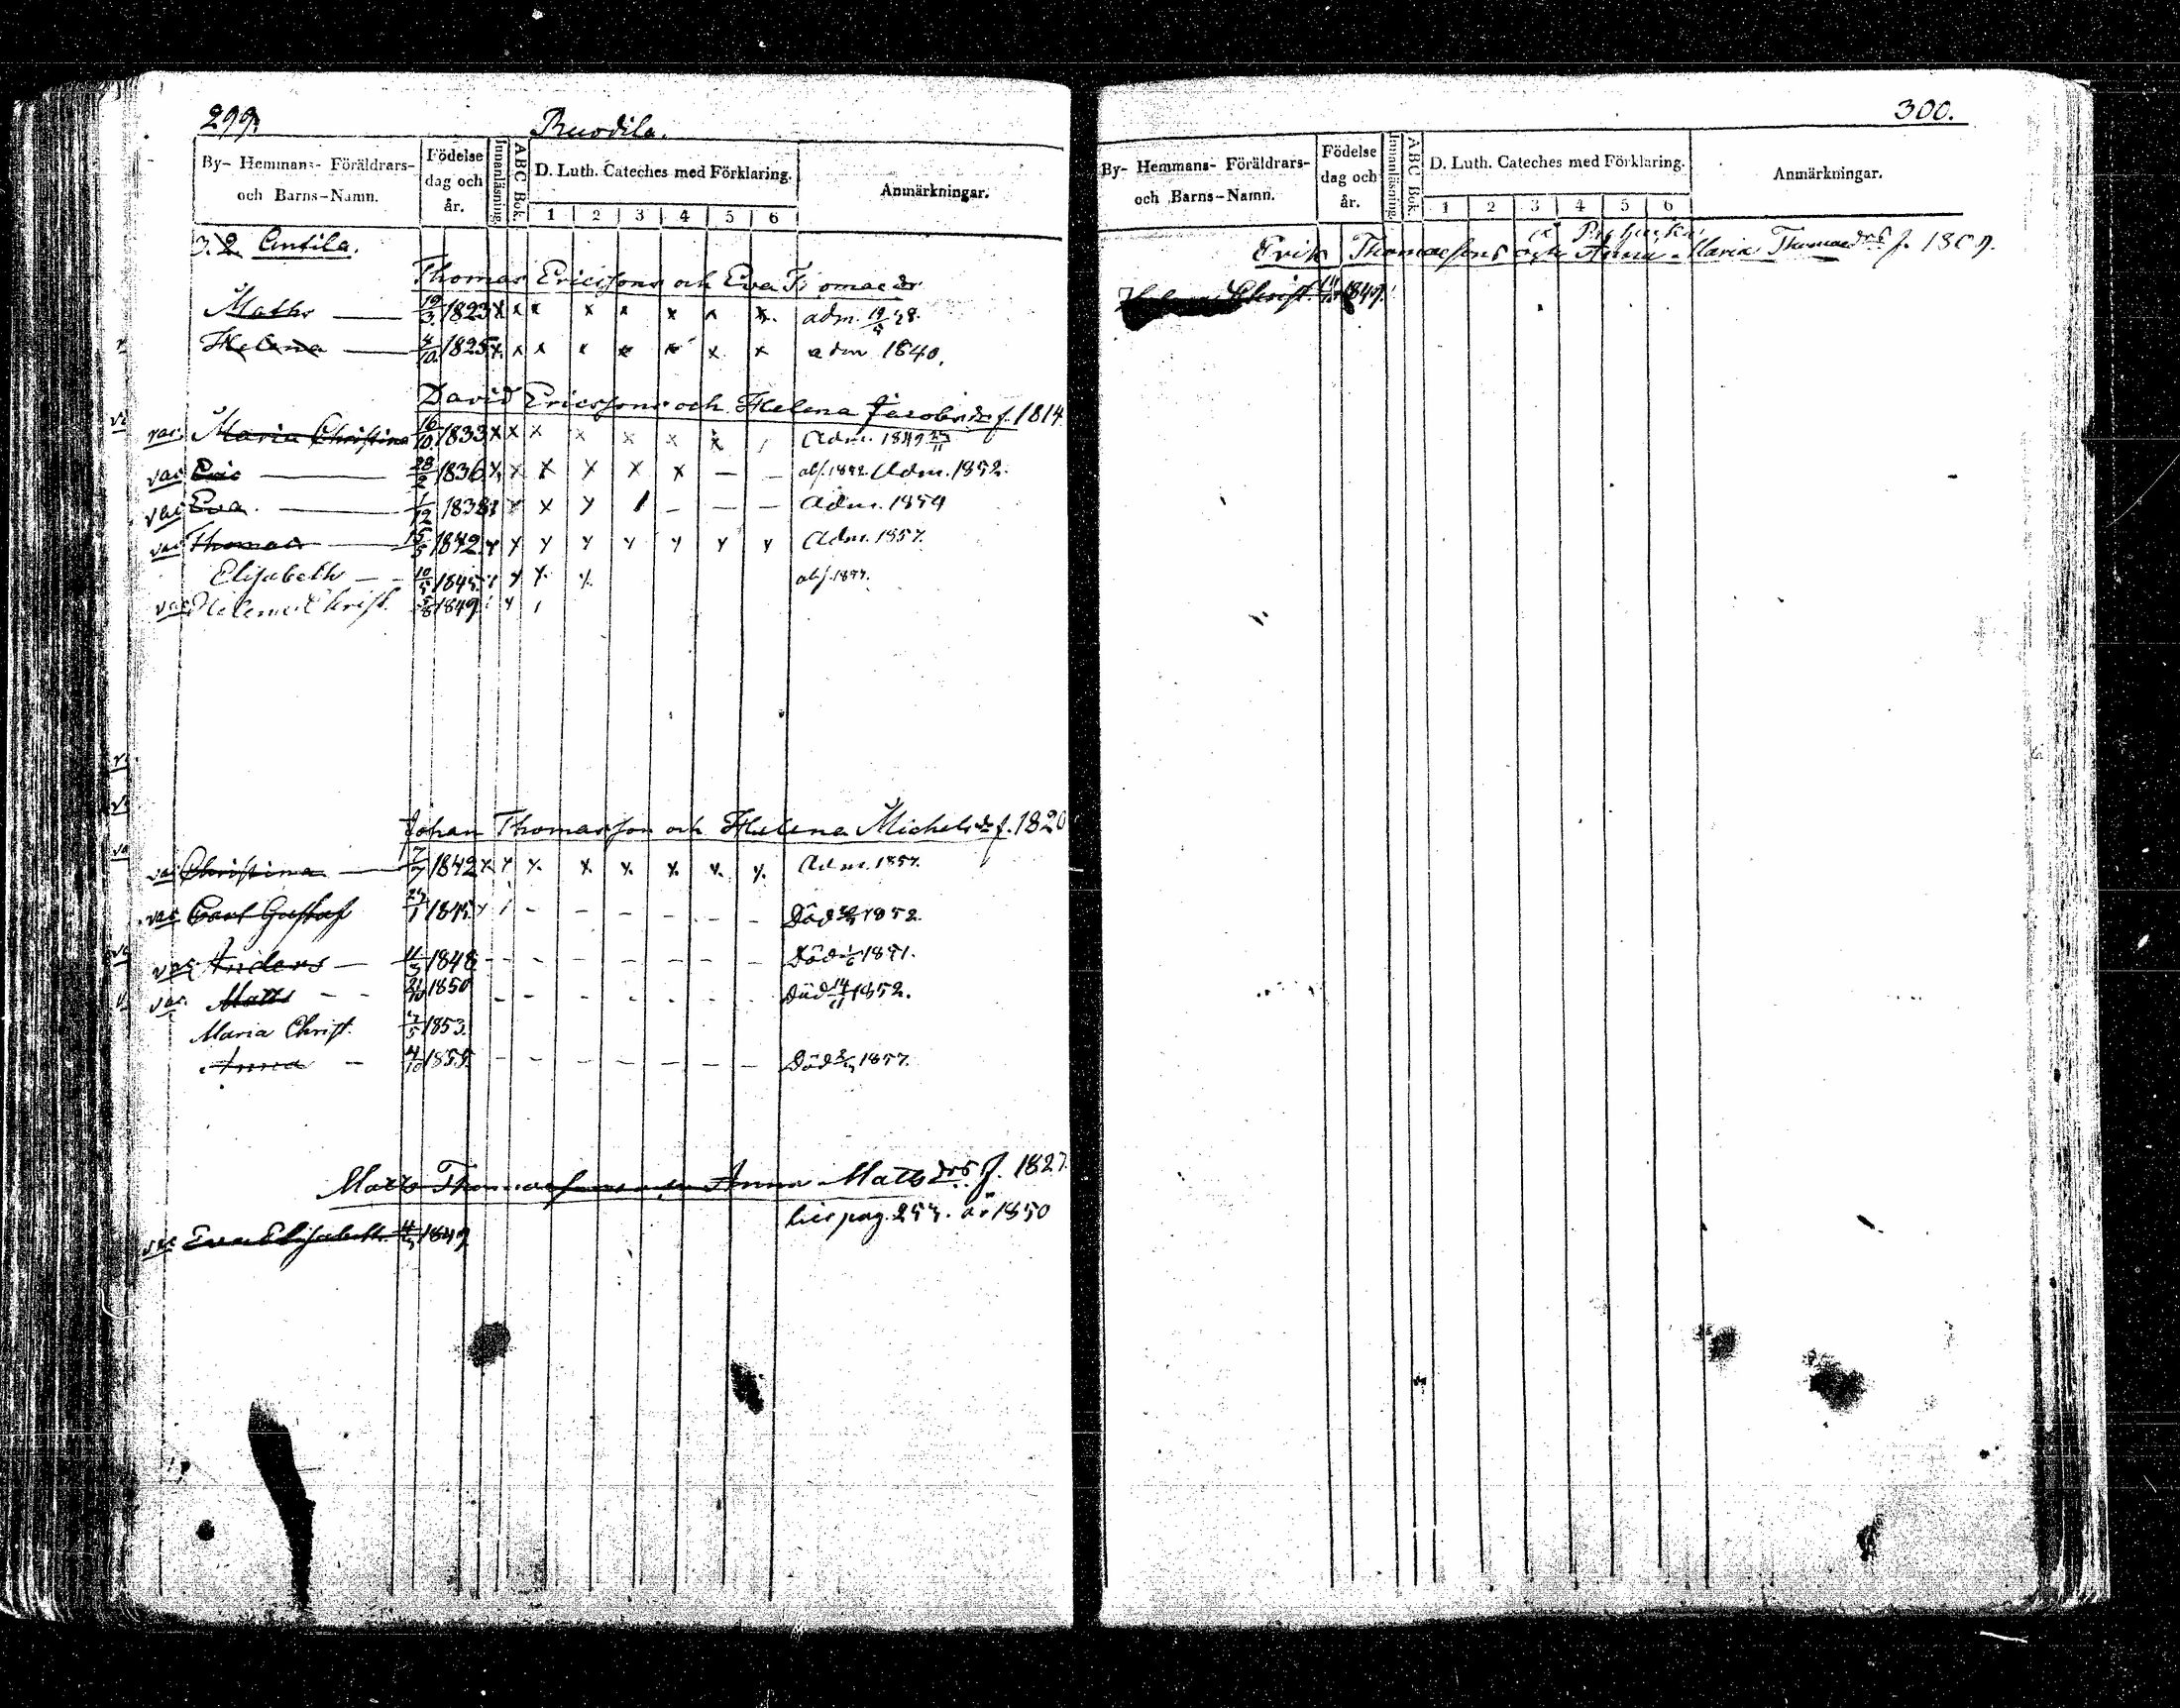 299.
Ruodila.
By- Hemmans- Föräldrars- och Barns-Namn.
Födelse dag och år.
Innanläsning.
ABC Bok.
D. Luth. Cateches med Förklaring.
1 2 3 4 5 6
Anmärkningar.
3. 2 Antila.
Thomas Ericssons och Eva Thomaedr
Maths — 19/3 1823 x x x x x x x x adm. 19/ 48.
Helena — 4/10 1825 x x x x x x x x adm 1840.
David Ericssons och Helena Jacobsdr f. 1814
vac. Maria Christina 16/10 1833 x x x x x x x Adm. 1849
vac Eric — 28/2 1836 x x x x x x — — Adm. 1852.
vac Eva. — 1/12 1838 x x — — — Adm. 1854
vac Thomas — 15/5 1842 x x x x x x x x Adm. 1857.
Elisabeth — 10/ 1845 x x x
vac Helena Christ. 1849
Johan Thomasson och Helena Michelsdr f. 1820
vac Christina — 7/7 1842 x x x x x x x x Adm. 1857.
vac Carl Gustaf 1845 — — — — — — Död 1852.
vac Anders — 11/3 1848 — — — — — — — Död 1/6 18
vac. Matts — — 21/10 1850 — — — — — — — Död 14/11 1852.
Maria Christ. 1853.
Anna — 4/10 1855 — — — — — — — Död 1857.
Matts Thomassons och Anna Matsdrs f. 1827.
pag. 25 . år 1850
vac Eva Elisabeth. 1849
300.
By- Hemmans- Föräldrars- och Barns-Namn.
Födelse dag och år.
Innanläsning.
ABC Bok.
D. Luth. Cateches med Förklaring.
1 2 3 4 5 6
Anmärkningar.
Erik Thomassons och Anna Maria Thomaedrs f. 180
Christ. 184